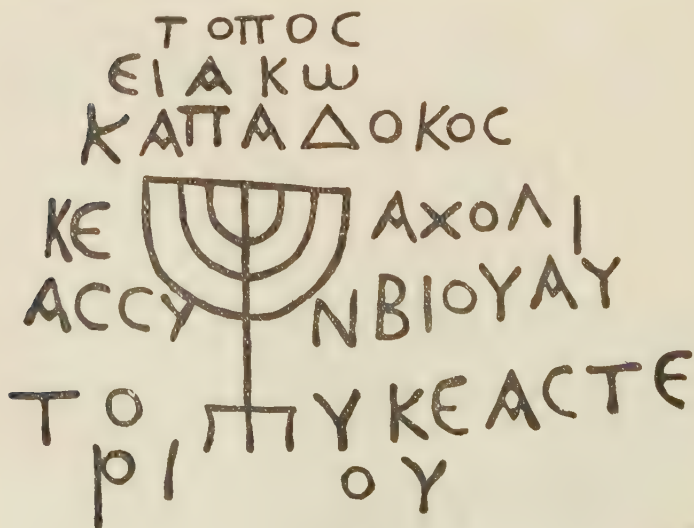 ΤΟΠΟC
ЄΙΑΚω
ΚΑΠΑΔΟΚΟC
ΚЄ ΑΧΟΛΙ
ΑCCΥ ΝΒΙΟΥΑΥ
ΤΟ ΥΚЄΑCΤЄ
ΡΙ ΟΥ